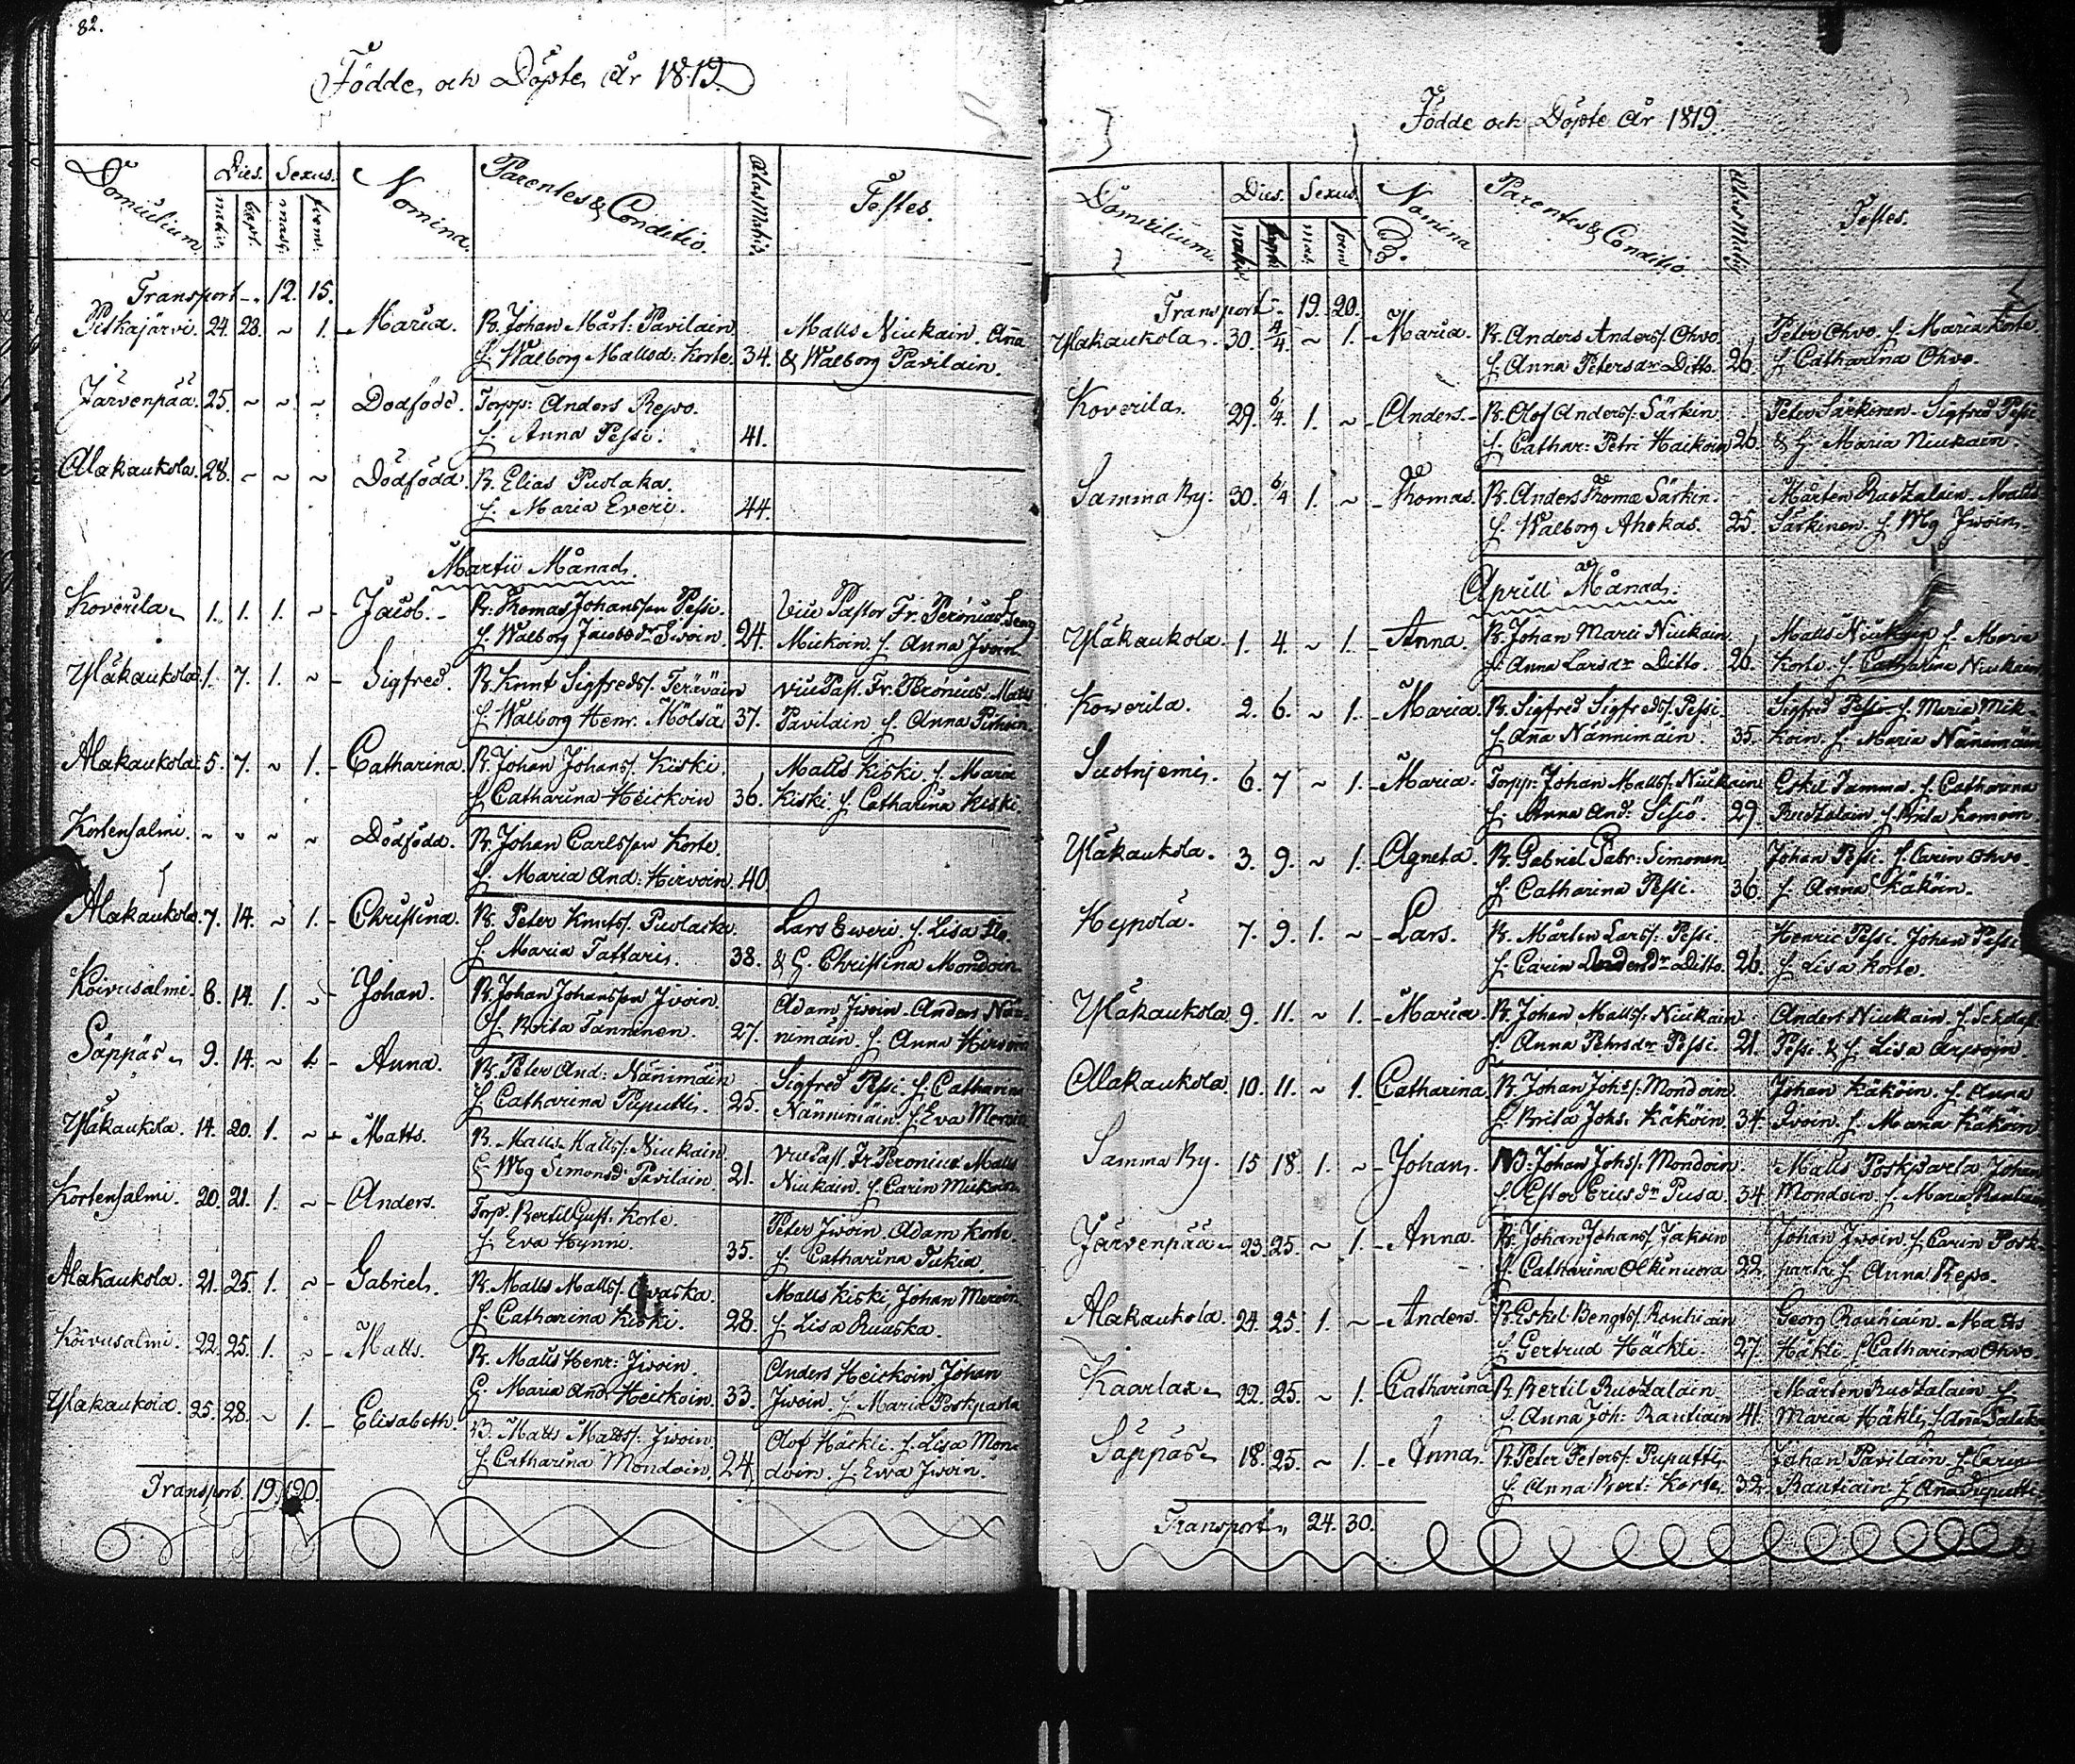 82.
Födde, och Döpte, År 1819.
Domicilium. Dies. Sexus. Nomina. Parentes & Conditio. Ætas Matris. Testes.
nativ. bapt. masc. foem:
Transport - . 12. 15.
Pitkäjärvi. 24. 28. ~ 1. Maria. B. Johan Mårt: Pavilain. Matts Niukain. Aña
H. Walborg Mattsd: Korte. 34. & Walborg Pavilain.
Järvenpää. 25. ~ ~ ~ Dödfödd. Torpp: Anders Repo.
H. Anna Pessi. 41.
Alakaukola. 28. ~ ~ ~ Dödfödd. B. Elias Puolaka.
H. Maria Everi. 44.
Martii Månad.
Koverila. 1. 1. 1. ~ Jacob. B. Thomas Johansson Pessi. Vice Pastor Fr. Peronius
H. Walborg Jacobsdr Iwoin. 24. Mickoin. H. Anna Ivoin.
Yläkaukola. 1. 7. 1. ~ Sigfred. B. Knut Sigfredss. Teräväin Vice Past. Fr. Peronius. Matts
H. Walborg Henr. Mölsä 37. Pavilain H. Anna
Alakaukola. 5. 7. ~ 1. Catharina. B. Johan Johans. Kiski. Matts Kiski. H. Maria
H. Catharina Heickoin 36. Kiski. H. Catharina Kiski.
Kortensalmi. ~ ~ ~ ~ Dödfödd. B. Johan Carlsson Korte.
H. Maria And: Hirvoin. 40
Alakaukola. 7. 14. ~ 1. Christina. B. Peter Knuts. Puolacka Lars Eweri. H. Lisa
H. Maria Tattaris. 38. & H. Christina Mondoin.
Koivusalmi. 8. 14. 1. ~ Johan. B. Johan Johansson Ivoin. Adam Iwoin. Anders Nän-
H. Brita Tanninen. 27. nimäin. H. Anna Hirvoin
Säppäs. 9. 14. ~ 1. Anna. B. Peter And: Nänimäin Sigfred Pessi. H. Catharina
H. Catharina Puputti. 25. Nännimäin. H. Eva Meroin
Yläkaukola. 14. 20. 1. ~ Matts. B. Matts Mattss. Niukain. Vice Past. Fr. Peronius Matts
H. Wbg Simonsd: Pavilain. 21. Niukain. H. Carin Mickoin
Kortensalmi. 20. 21. 1. ~ Anders. Torp. Bertil Gust. Korte. Peter Iwoin. Adam Korte.
H. Eva Hynni. 35. H. Catharina Tukia.
Alakaukola. 21. 25. 1. ~ Gabriel. B. Matts Matts. Matts Kiski Johan Meroin
H. Catharina Kiski. 28. H. Lisa Ruuska.
Koivusalmi. 22. 25. 1. ~ Matts. B. Matts Henr: Iwoin. Anders Heickoin Johan
H. Maria And. Heickoin. 33. Iwoin. H. Maria Poskiparta
Yläkaukola. 25. 28. ~ 1. Elisabeth. B. Matts Matts. Iwoin. Olof Häckli. H. Lisa Mon-
H. Catharina Mondoin. 24. doin. H. Ewa Iwoin.
Transport. 19. 20.
Födde och Döpte År 1819.
Domicilium. Dies. Sexus. Nomina Parentes & Conditio. Ætas Matris Testes.
nativ. bapt. mas. foem
Transport - 19. 20.
Yläkaukola. 30. 4/4 ~ 1. Maria. B. Anders Anders. Ohvo. Peter Ohvo. H. Maria Korte
H. Anna Petersdr Ditto. 26. H. Catharina Ohvo.
Koverila. 29. 6/4. 1. ~ Anders. B. Olof Anders. Särkin. Peter Särkinen. Sigfred Pessi
H. Cathar: Petri Haikoin 26. & H. Maria Niukain.
Samma By. 30. 6/4 1. ~ Thomas. B. Anders Thomæ Särkin. Mårten Ruotzalain. Matts
H. Walborg Ahokas. 25. Särkinen. H. Wbg Iwoin.
Aprill Månad.
Yläkaukola. 1. 4. ~ 1. Anna. B. Johan Niukain Matts Niukain H. Maria
H. Anna Larsdr Ditto. 26. Korte. H. Catharina Niukain
Kowerila. 2. 6. ~ 1. Maria. B. Sigfred Sigfreds. Pessi. Sigfred Pessi H. Maria Mik-
H. Ana Nännimäin. 35. koin. H. Maria Nänimäin
Suotniemi. 6. 7 ~ 1. Maria. Torpp. Johan Matts. Niukain Eskil Tamma. H. Catharina
H. Anna And. 29. Ruotzalain H. Brita Komoin
Yläkaukola. 3. 9. ~ 1. Agneta. B. Gabriel Gabr: Simonen Johan Pessi. H. Carin Ohvo
H. Catharina Pessi. 36. H. Anna Käköin.
Hynölä. 7. 9. 1. ~ Lars. B. Mårten Lars. Pessi. Henric Pessi. Johan Pessi
H. Carin Ditto. 26. H. Lisa Korte.
Yläkaukola. 9. 11. ~ 1. Maria. B. Johan Matts. Niukain Anders Niukain.
H. Anna Pehrsdr Pessi. 21. Pessi. & H. Lisa
Alakaukola. 10. 11. ~ 1. Catharina B. Johan Johs. Mondoin. Johan Käköin. H. Anna
H. Brita Johs. Käköin. 34. Ivoin. H. Maria Käköin
Samma By. 15 18. 1. ~ Johan. B. Johan Johs. Mondoin Matts Poskiparta Johan
H. Ester Ericsdr Pusa. 34. Mondoin. H. Maria Rautiain
Järvenpää. 23. 25. ~ 1. Anna. B. Johan Johans. Jakoin Johan Iwoin. H. Carin Posk-
H. Catharina Olkinuora 22. parta. H. Anna Repo.
Alakaukola. 24. 25. 1. ~ Anders. B. Eskel Bengts. Rautiain Georg Rautiain. Matts
H. Gertrud Häckli. 27. Häkli. H. Catharina Ohvo.
Kaarlax. 22. 25. ~ 1. Catharina B. Bertil Ruotzalain Mårten Ruotzalain H.
H. Anna Joh: Rautiain 41. Maria Häkli,
Säppäs. 18. 25. ~ 1. Anna. B. Peter Peters. Puputti. Johan Pavilain. H. Carin
H. Anna Bert: Korte. 32. Rautiain. H. Ana Puputti.
Transport. 24. 30.